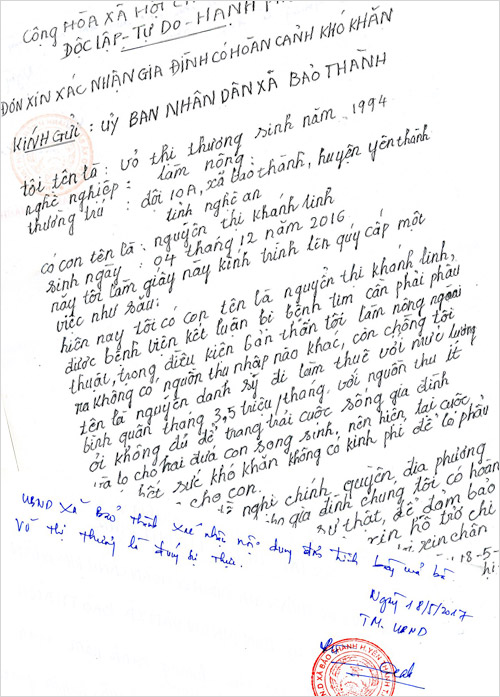 CỘNG HÒA XÃ HỘI CH
ĐỘC LẬP - TỰ DO - HẠNH P
ĐƠN XIN XÁC NHẬN GIA ĐÌNH CÓ HOÀN CẢNH KHÓ KHĂN
KÍNH GỬI : UỶ BAN NHÂN DÂN XÃ BẢO THÀNH
tôi tên là : võ thị thương sinh năm 1994
nghề nghiệp : làm nông.
thường trú : đội 10A, xã bảo thành, huyện yên thành
tỉnh nghệ an
có con tên là : nguyễn thị khánh linh
sinh ngày : 04 tháng 12 năm 2016
nay tôi làm giấy này kính trình lên quý cấp một
việc như sau:
hiện nay tôi có con tên là nguyễn thị khánh linh,
được bệnh viện kết luận bị bệnh tim cần phải phẫu
thuật, trong điều kiện bản thân tôi làm nông ngoài
ra không có nguồn thu nhập nào khác, còn chồng tôi
tên là nguyễn danh sỹ đi làm thuê với mức lương
bình quân tháng 3,5 triệu/tháng. với nguồn thu ít
ỏi không đủ để trang trải cuộc sống gia đình
và lo cho hai đứa con song sinh, nên hiện tại cuộc
hết sức khó khăn không có kinh phí để lo phẫu
cho con.
nghị chính quyền, địa phương
gia đình chúng tôi có hoàn
sự thật, để đảm bảo
xin hỗ trợ chi
xin chân
18-5-
UBND xã Bảo Thành xác nhận nội dung đơn trình bày của bà
Võ Thị Thương là đúng sự thực.
Ngày 18/5/2017
TM. UBND
XÃ BẢO THÀNH H. YÊN THÀNH